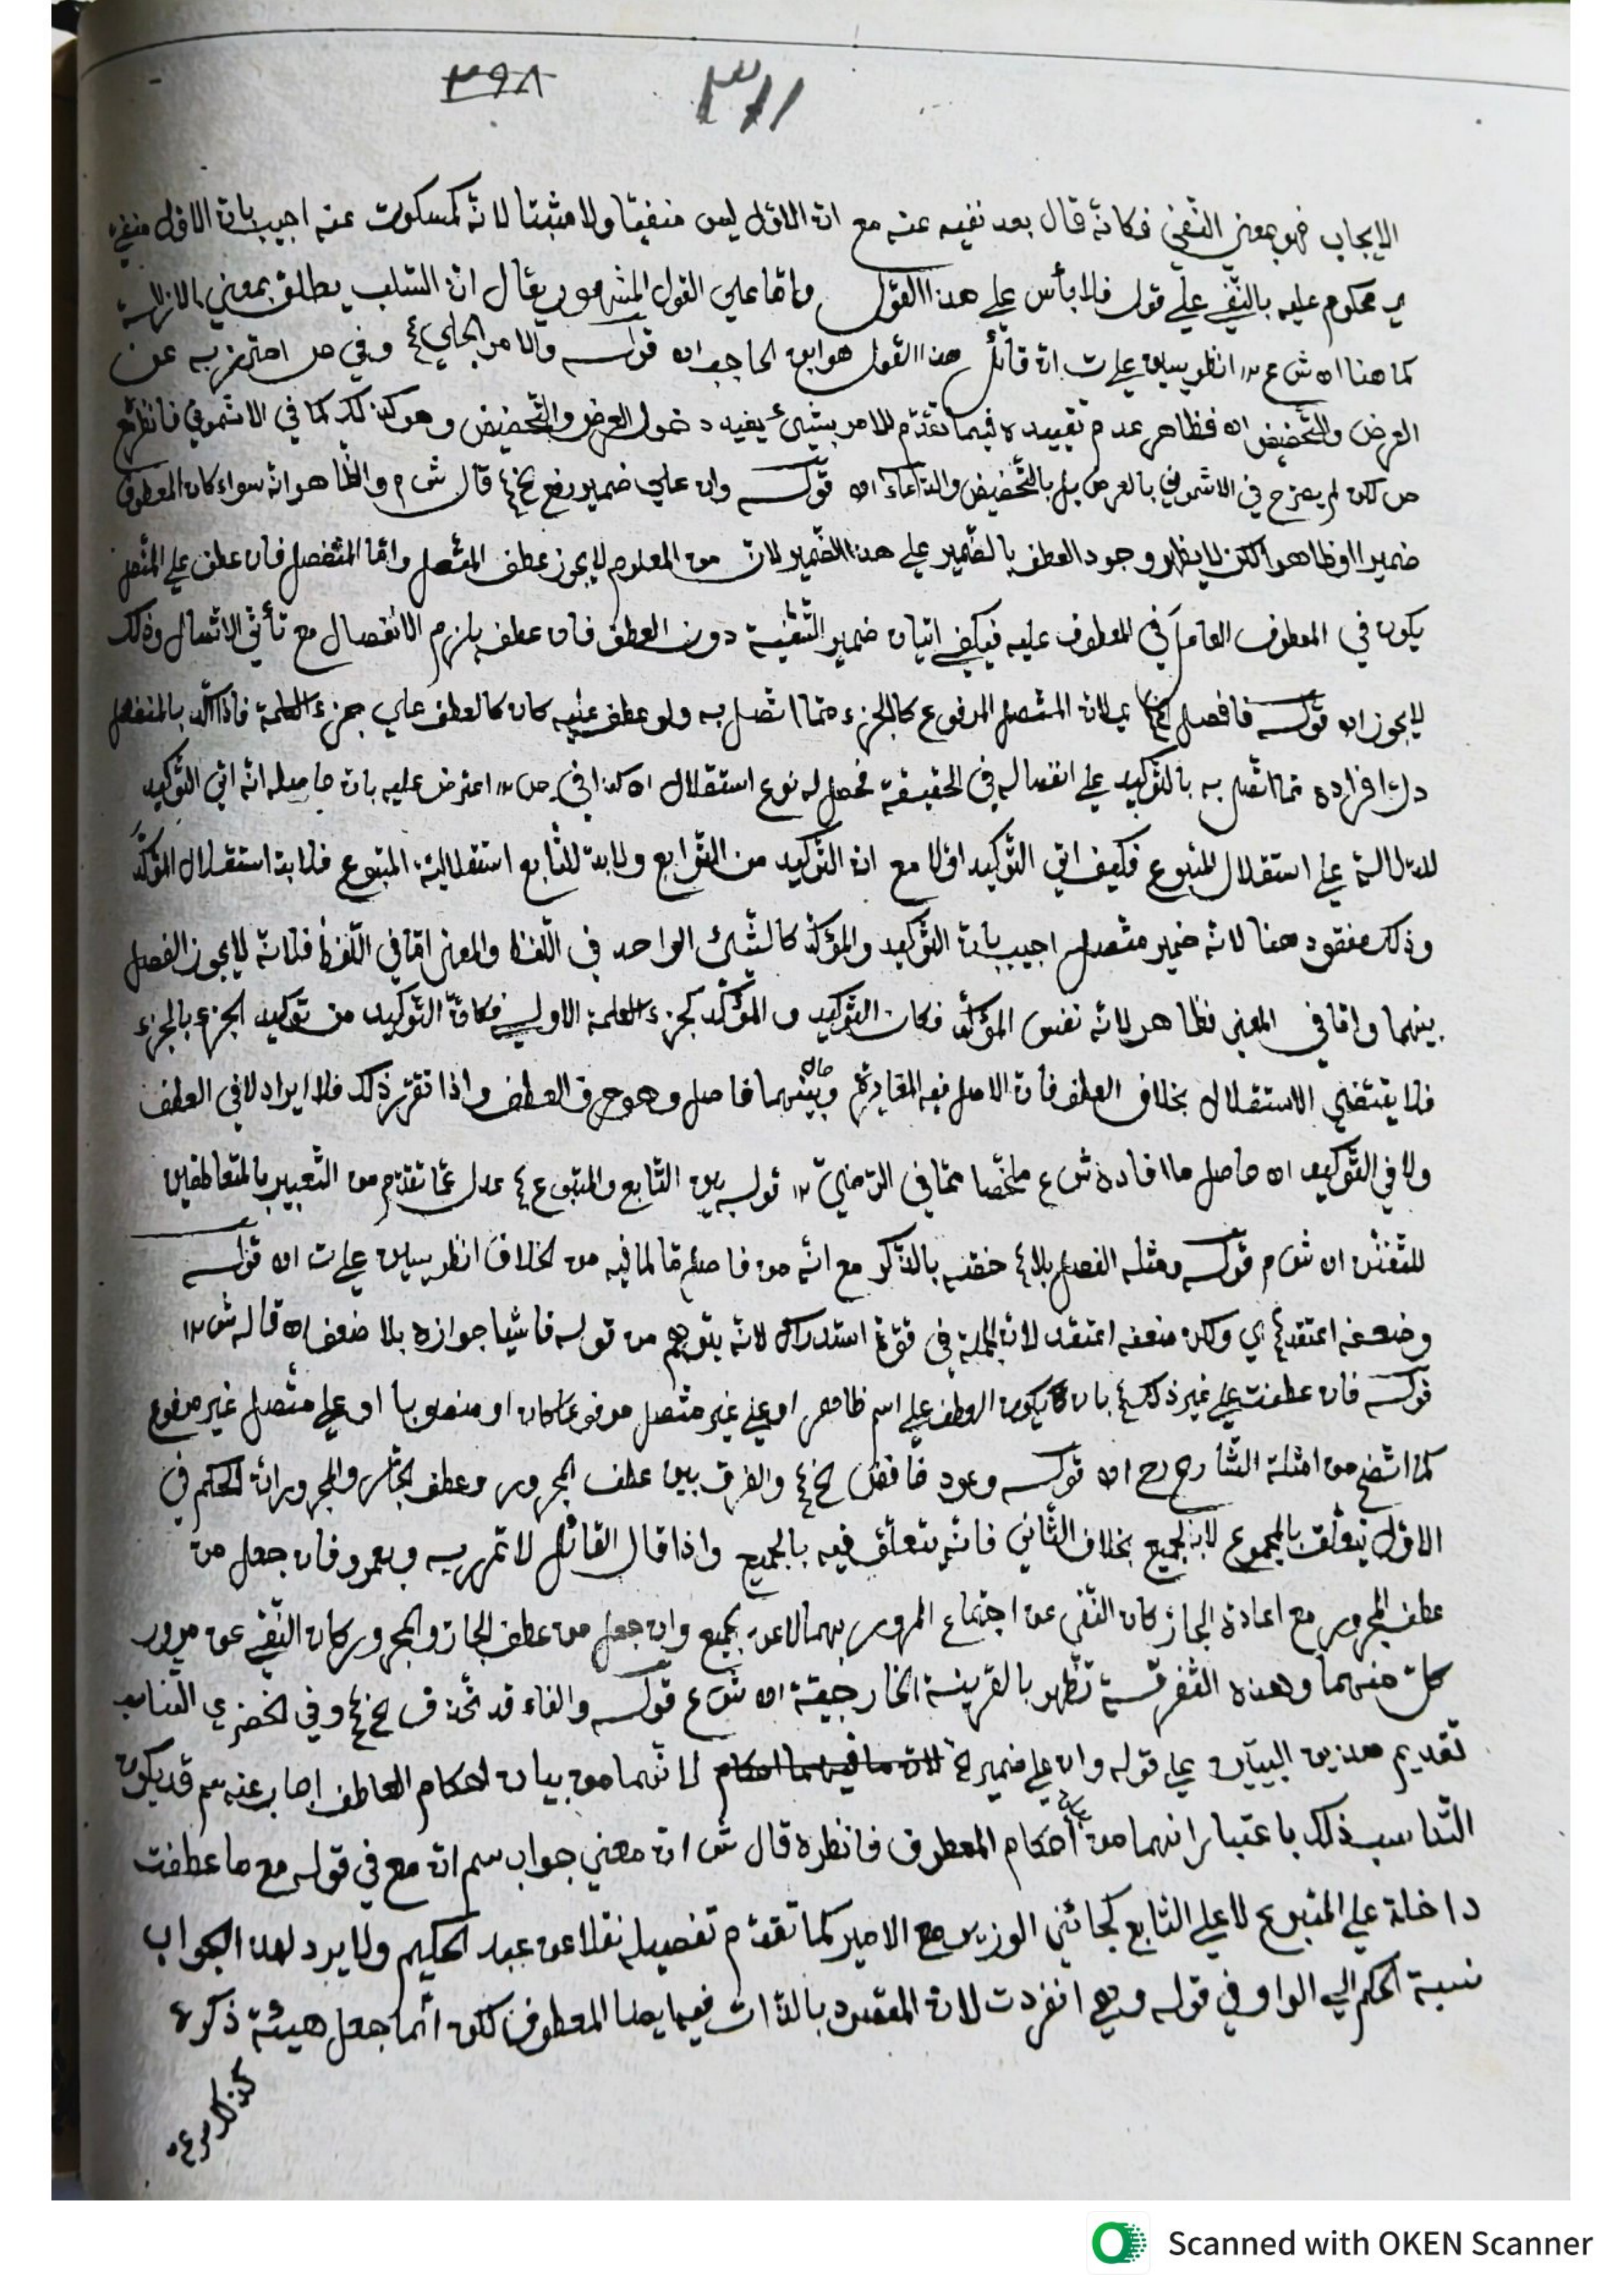 ٣٩٨ ٣١١
الإيجاب فهو بمعنى النّفي فكانّه قال بعد نفيه عنه مع انّ الاوّل ليس منفيّا ولا مثبتا لانّه كمسكوت عنه اجيب بانّ الاوّل منفيّ
ي محكوم عليه بالنّفي علي قول فلا بأس علي هذا القول وامّا علي القول المشهور يقال انّ السّلب يطلق بمعني الازالة
كما هنا اه ش ع ١٢ انظر يسين علي ت انّ قائل هذا القول هو ابن الحاجب اه قولـه والامر الجلي ٤ وفي ص احترز به عن
العرض والتّحضيض اه فظاهر عدم تقييده فيما تقدّم للامر بشيئ يفيد دخول العرض والتّحضيض وهو كذلك كما في الاشموني فانظره مع
ص لكن لم يصرّح في الاشموني بالعرض بل بالتّحضيض والدّعاء اه قولـه وان علي ضمير رفع الخ ٤ قال ش م والظّاهر انّه سواء كان المعطوف
ضميرا او ظاهرا لكن لا يظهر وجود العطف بالضّمير علي هذا الضّمير لانّ من المعلوم لا يجوز عطف المتّصل وامّا المنفصل فان عطف علي المتّصل
يكون في المعطوف العامل في المعطوف عليه فيكفي اتيان ضمير التّثنية دون العطف فان عطف يلزم الانفصال مع تأتّي الاتّصال وذلك
لا يجوز اه قولـه فافصل الخ ٤ ي لانّ المتّصل المرفوع كالجزء ممّا اتّصل به ولو عطف عليه كان كالعطف علي جزء الكلمة فاذا اكّد بالمنفصل
دلّ افراده ممّا اتّصل به بالتّوكيد علي انفصاله في الحقيقة فحصل له نوع استقلال اه كذا في ص ١٢ اعترض عليه بانّ حاصله انّه اتي التّوكيد
للدّلالة علي استقلال المتبوع فكيف اتي التّوكيد اوّلا مع انّ التّوكيد من التّوابع ولا بدّ للتّابع استقلاليّة المتبوع فلا بدّ استقلال المؤكَّد
وذلك مفقود هنا لانّه ضمير متّصل اجيب بانّ التّوكيد والمؤكّد كالشّيئ الواحد في اللّفظ والمعني امّا في اللّفظ فلانّه لا يجوز الفصل
بينهما وامّا في المعني فظاهر لانّه نفس المؤكّد فكان التّوكيد والمؤكّد كجزء الكلمة الاولي فكانّ التّوكيد من توكيد الجزء بالجزء
فلا يقتضي الاستقلال بخلاف العطف فانّ الاصل فيه المغايرة وبينهما فاصل وهو حرف العطف واذا تقرّر ذلك فلا ايراد لا في العطف
ولا في التّوكيد اه حاصل ما افاده ش ع ملخّصا ممّا في الرّضيّ ١٢ قولـه بين التّابع والمتبوع ٤ عدل عمّا تقدّم من التّعبير بالمتعاطفين
للتّفنّن اه ش م قولـه ومثله الفصل بلا ٤ خصّه بالذّكر مع انّه من فاصل مّا لما فيه من الخلاف انظر يسين علي ت اه قولـه
وضعفه اعتقد ٤ ي ولكن ضعفه اعتقد لانّ الجملة في قوّة استدراك لانّه يتوهّم من قولـه فاشيا جوازه بلا ضعف اه قاله ش ١٢
قولـه فان عطفت علي غير ذلك ٤ بان يكون العطف علي اسم ظاهر او علي غير متّصل مرفوعا كان او منصوبا او علي متّصل غير مرفوع
كما اتّضح من امثلة الشّارح رح اه قولـه وعود خافض الخ ٤ والفرق بين عطف المجرور وعطف الجارّ والمجرور انّه الحكم في
الاوّل يتعلّق بالمجموع لا بالجميع بخلاف الثّاني فانّه يتعلّق فيه بالجميع واذا قال القائل لا تمرر به وبعمرو فان جعل من
عطف المجرور مع اعادة الجارّ كان النّفي عن اجتماع المرور بهما لا عن الجميع وان جعل من عطف الجارّ والمجرور كان النّفي عن مرور
كلّ منهما وهذه التّفرقـة تظهر بالقرينـة الخارجيّة اه ش ع قولـه والفاء قد تحذف الخ ٤ وفي الخضري المناسب
تقديم هذين البيتين علي قوله وان علي ضمير الخ لانّ ما فيهما احكام لانّهما من بيان احكام العاطف اجاب عنه سم قد يكون
التّناسب ذلك باعتبار انهما من احكام المعطوف فانظره قال ش انّ معني جواب سم انّ مع في قولـه مع ما عطفت
داخلة علي المتبوع لا علي التابع كجائني الوزير مع الامير كما تقدّم تفصيله نقلا عن عبد الحكيم ولا يرد لهذا الجواب
نسبة الحكم الي الواو في قولـه وهي انفردت لانّ المقصود بالذّات فيها ايضا المعطوف لكن انّما جعل هيئة ذكره
كذلك
Scanned with OKEN Scanner